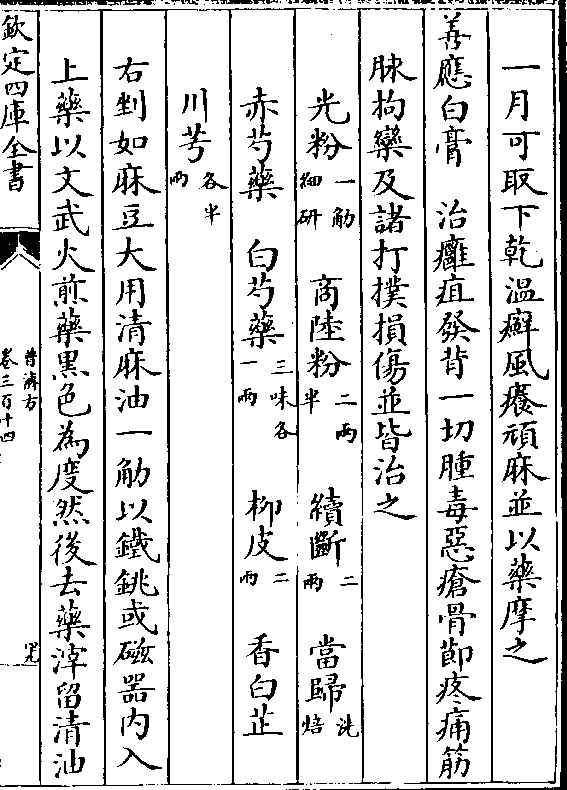 一月可取下乾溫癬風癢頑麻並以藥摩之
善應白膏　治癰疽發背一切腫毒惡瘡骨節疼痛筋
脉拘攣及諸打撲損傷並皆治之
光粉一觔細研　商陸粉二兩半　續斷二兩　當歸洗焙
赤芍藥　白芍藥三味各一兩　柳皮二兩　香白芷
川芎各半兩
右剉如麻豆大用清麻油一觔以鐵銚或磁器内入
上藥以文武火煎藥黑色為度然後去藥滓留清油
欽定四庫全書
普濟方
卷三百十四